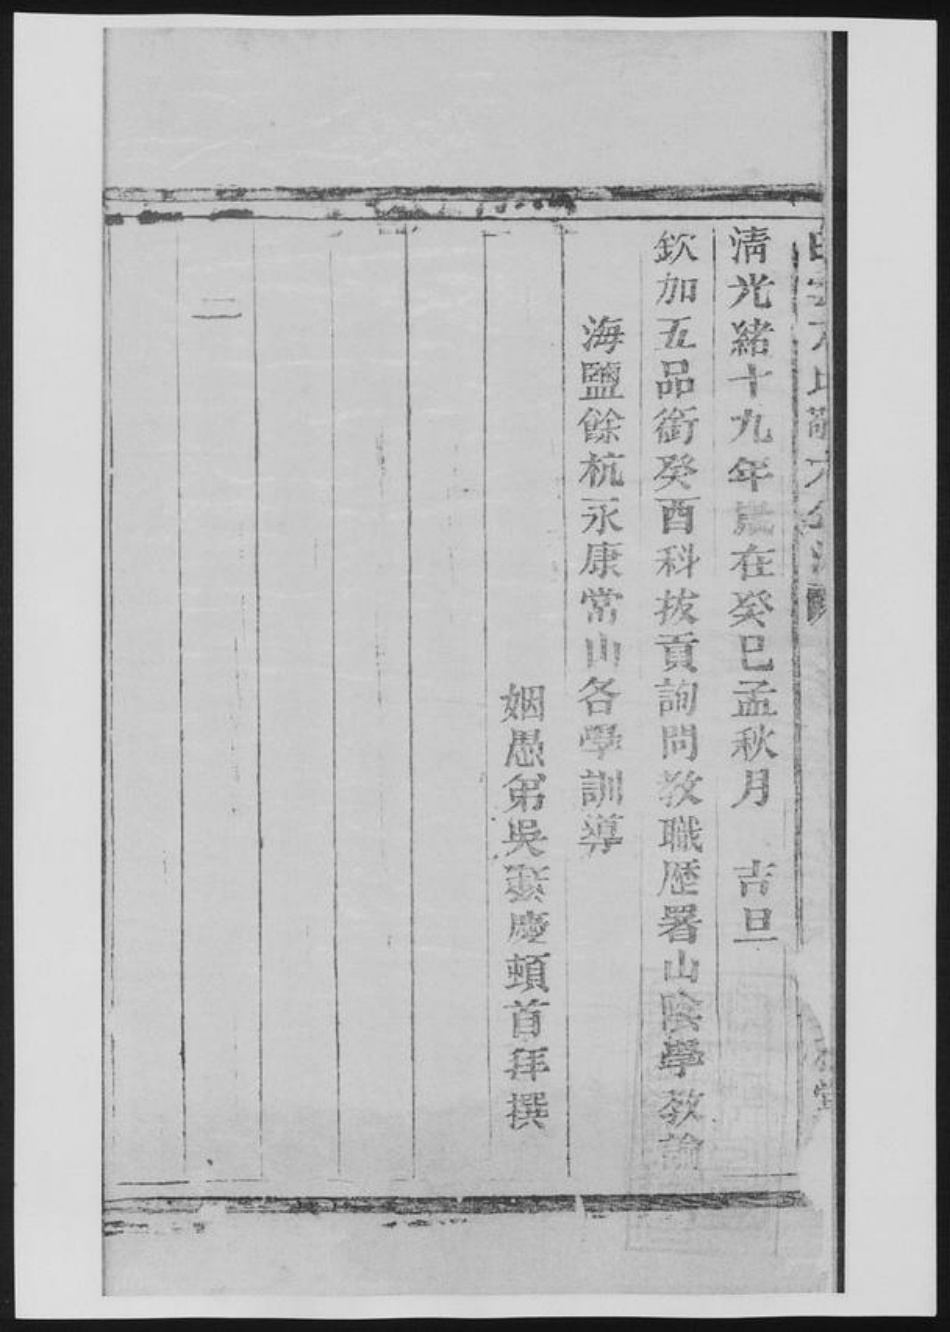 清光緒十九年歲在癸巳孟秋月 吉旦
欽加五品銜癸酉科拔貢詢問教職歷署山陰學教諭
海鹽餘杭永康常山各學訓導
姻愚弟吳慶頓首拜撰
二